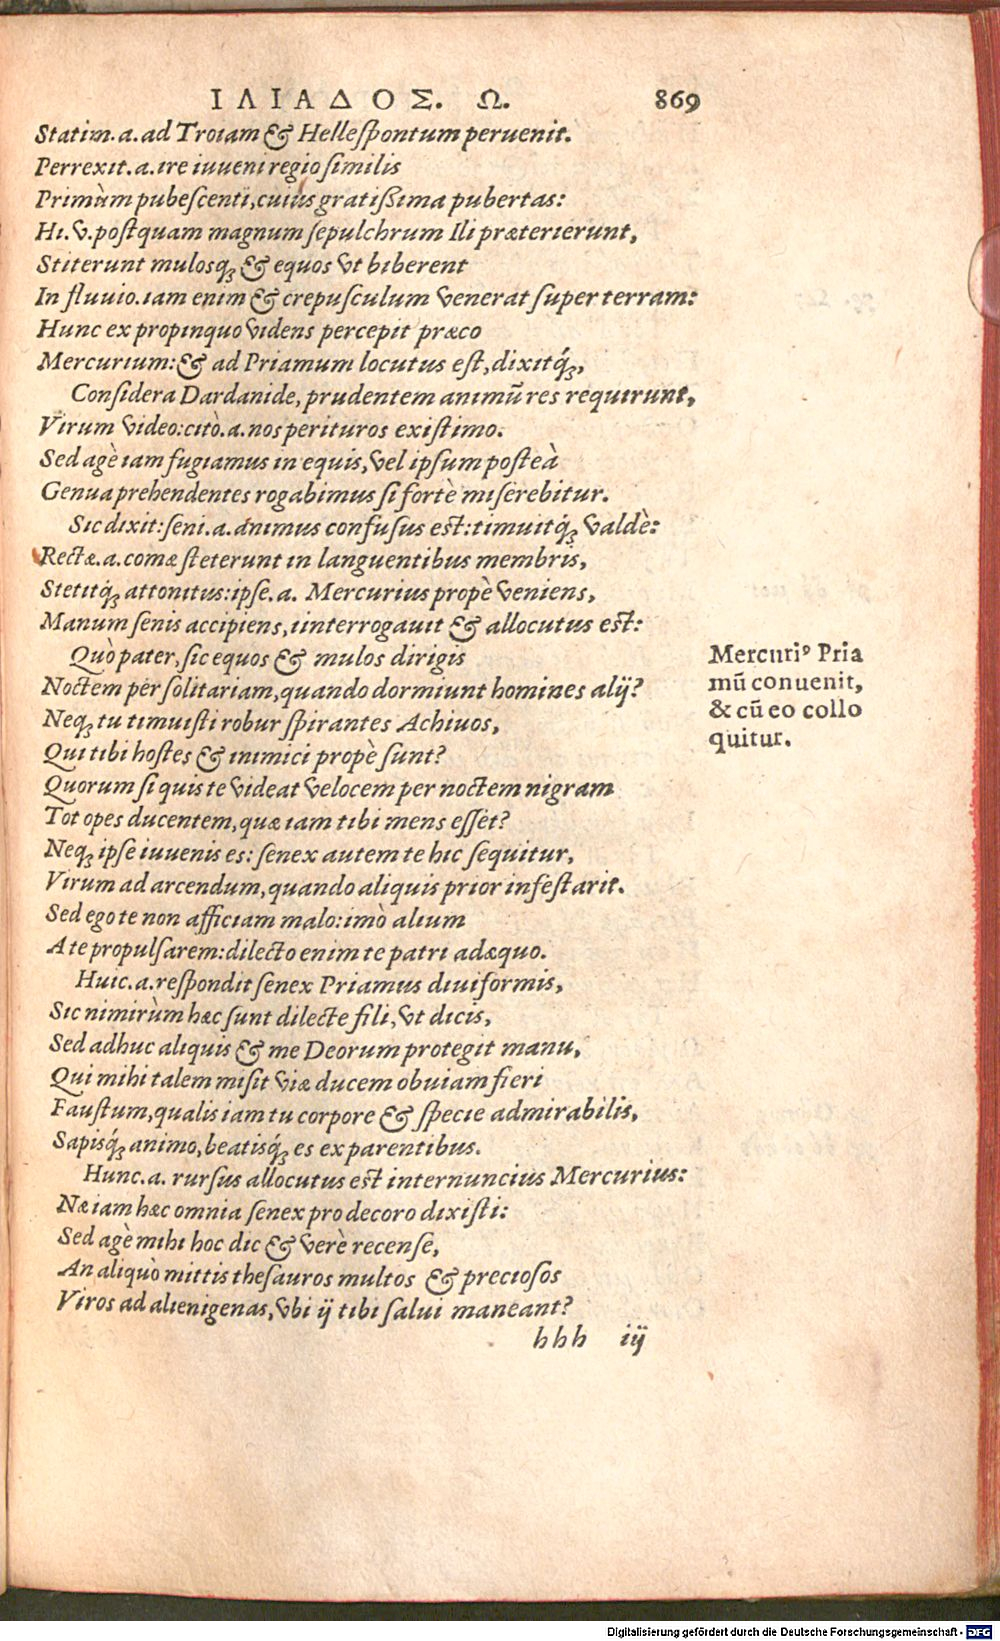 ΙΛΙΑΔΟΣ. Ω. 869
Statim.a.ad Troiam & Hellespontum peruenit.
Perrexit.a.ire iuueni regio similis
Primùm pubescenti,cuius gratißima pubertas:
Hi.v.postquam magnum sepulchrum Ili præterierunt,
Stiterunt mulosq; & equos vt biberent
In fluuio.iam enim & crepusculum venerat super terram:
Hunc ex propinquo videns percepit præco
Mercurium:& ad Priamum locutus est,dixitq́;,
Considera Dardanide,prudentem animū res requirunt,
Virum video:citò.a.nos perituros existimo.
Sed agè iam fugiamus in equis,vel ipsum posteà
Genua prehendentes rogabimus si fortè miserebitur.
Sic dixit:seni.a.animus confusus est:timuitq́; valdè:
Rectæ.a.comæ steterunt in languentibus membris,
Stetitq́; attonitus:ipse.a. Mercurius propè veniens,
Manum senis accipiens,iinterrogauit & allocutus est:
Quò pater,sic equos & mulos dirigis
Noctem per solitariam,quando dormiunt homines alij?
Neq; tu timuisti robur spirantes Achiuos,
Qui tibi hostes & inimici propè sunt?
Quorum si quis te videat velocem per noctem nigram
Tot opes ducentem,quæ iam tibi mens esset?
Neq; ipse iuuenis es: senex autem te hic sequitur,
Virum ad arcendum,quando aliquis prior infestarit.
Sed ego te non afficiam malo:imò alium
A te propulsarem:dilecto enim te patri adæquo.
Huic.a.respondit senex Priamus diuiformis,
Sic nimirùm hæc sunt dilecte fili,vt dicis,
Sed adhuc aliquis & me Deorum protegit manu,
Qui mihi talem misit viæ ducem obuiam fieri
Faustum,qualis iam tu corpore & specie admirabilis,
Sapisq́; animo,beatisq́; es ex parentibus.
Hunc.a. rursus allocutus est internuncius Mercurius:
Næ iam hæc omnia senex pro decoro dixisti:
Sed agè mihi hoc dic & verè recense,
An aliquò mittis thesauros multos & preciosos
Viros ad alienigenas,vbi ij tibi salui maneant?
hhh iij
Mercuriꝰ Pria
mū conuenit,
& cū eo collo
quitur.
Digitalisierung gefördert durch die Deutsche Forschungsgemeinschaft - DFG